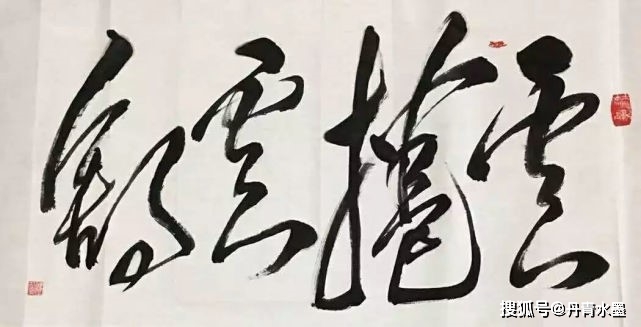 雲捲雲舒
搜狐号@丹青水墨